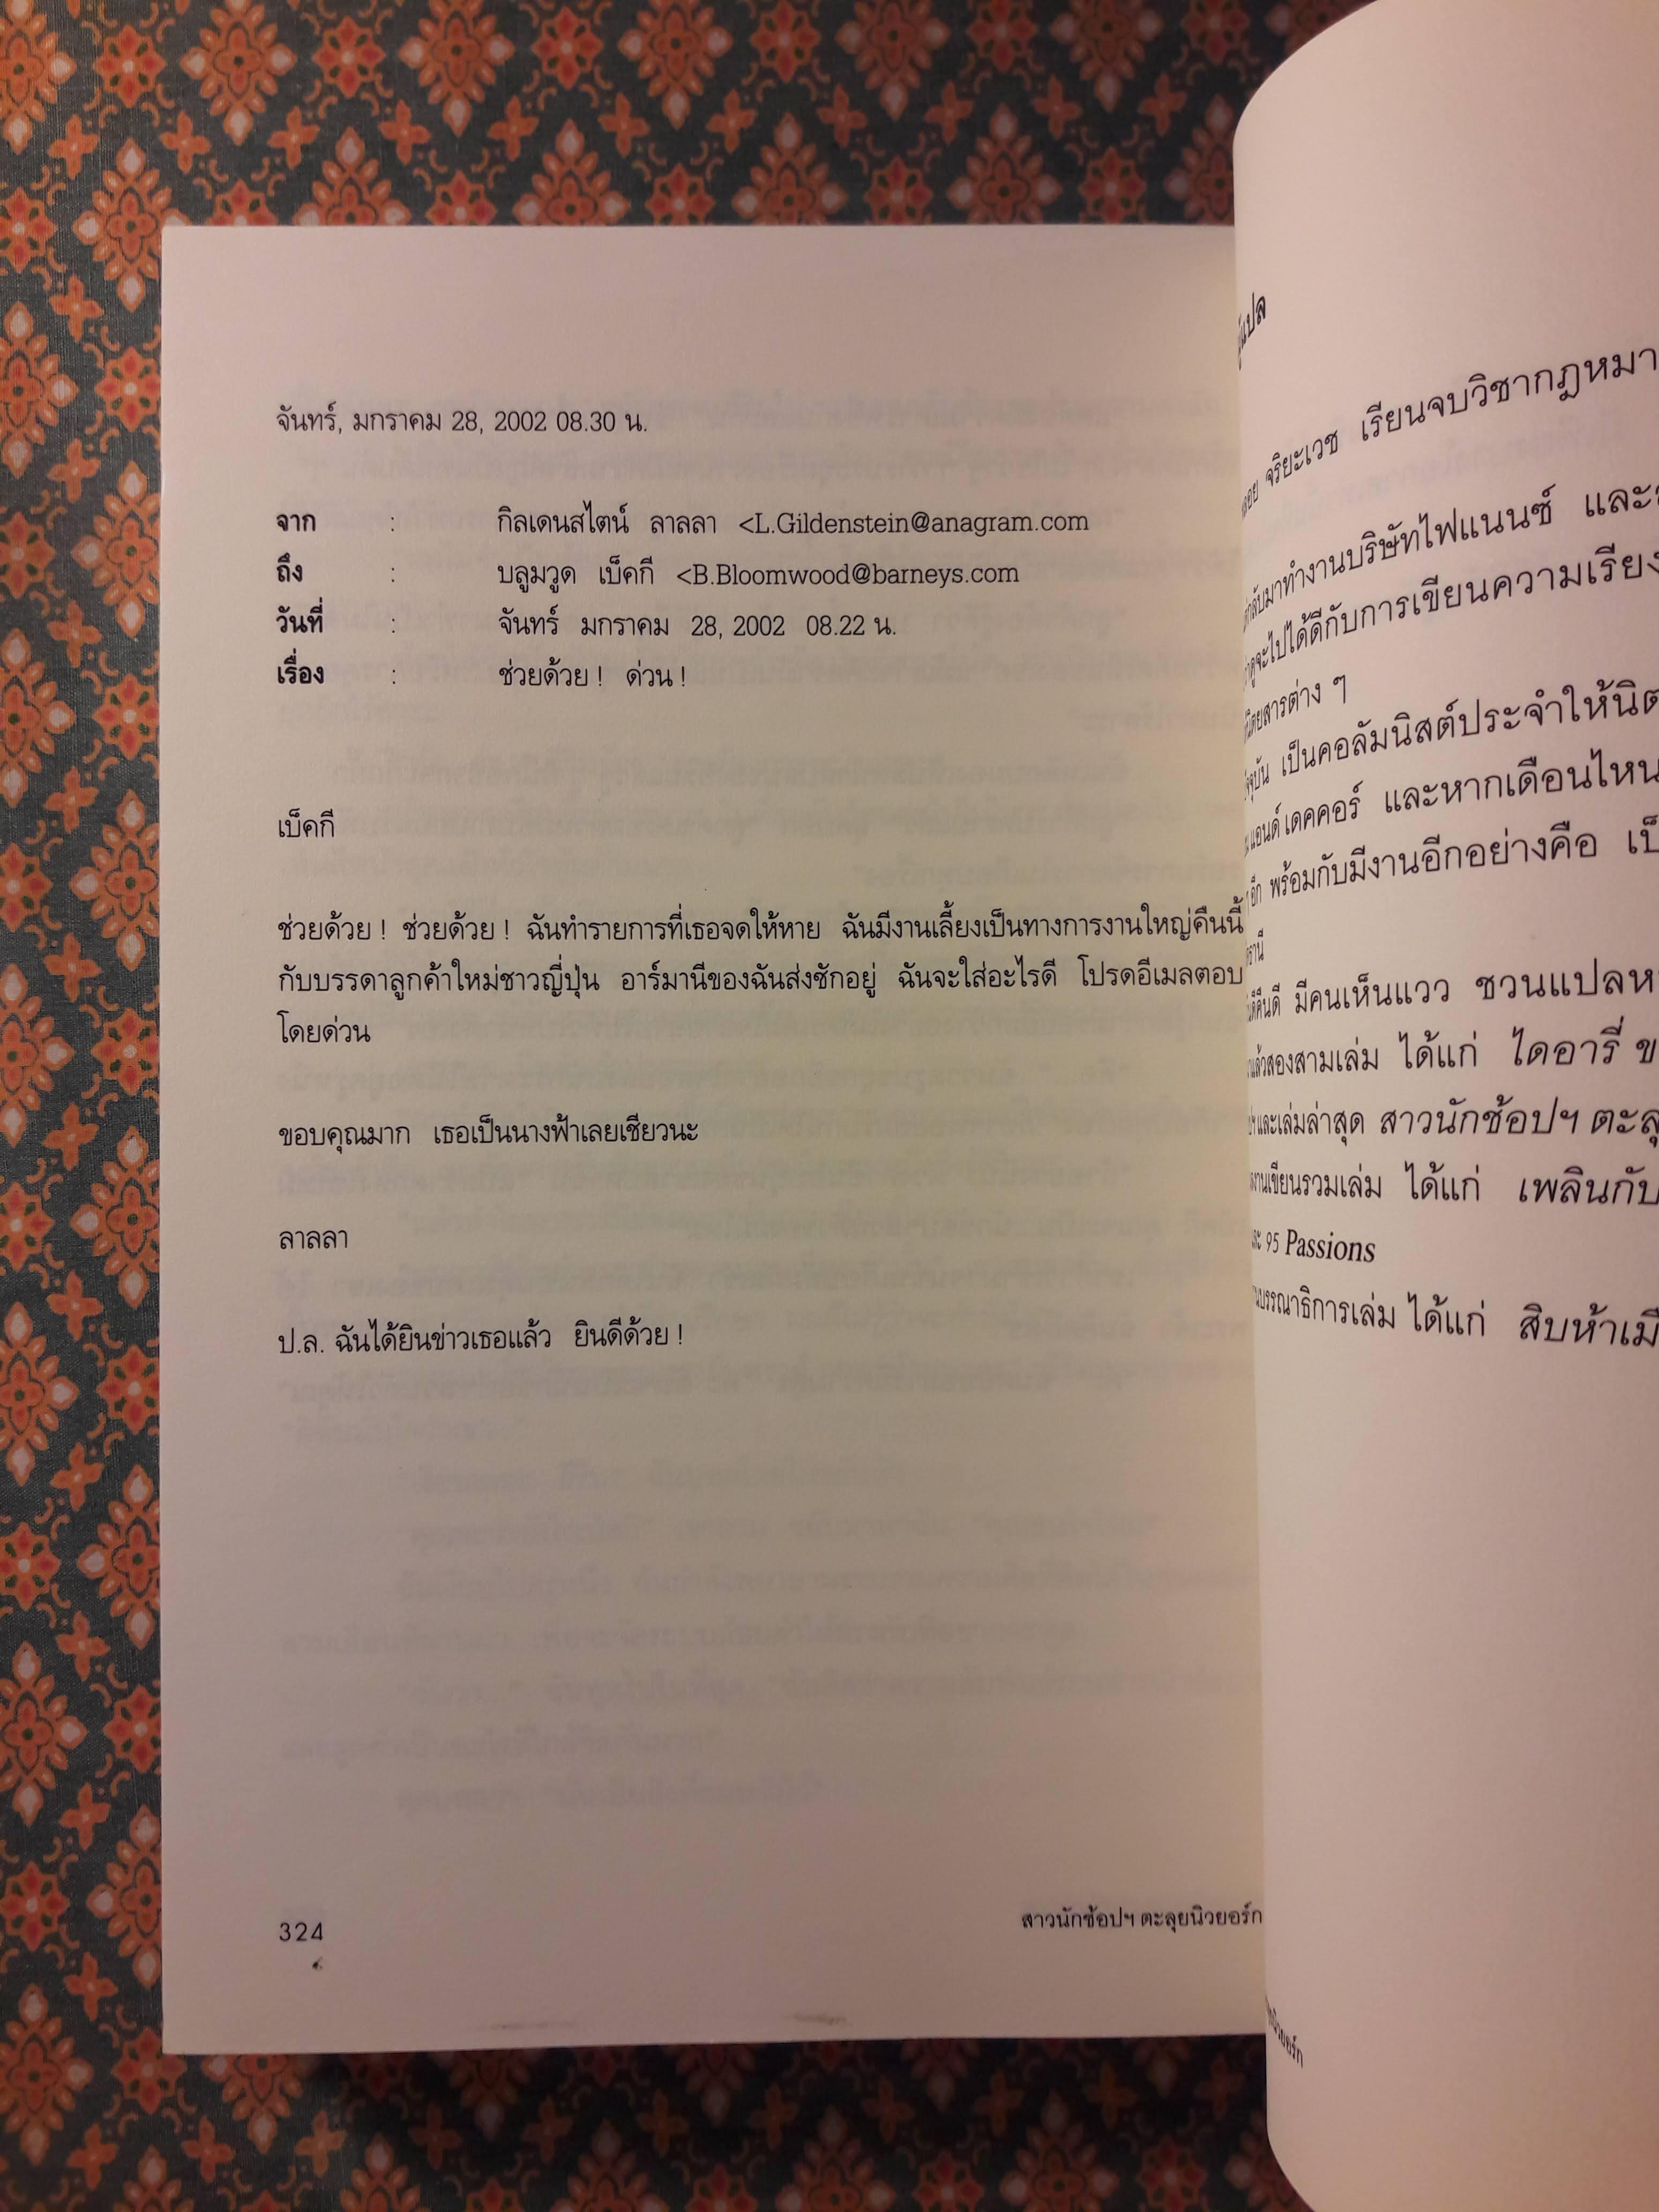 จันทร์, มกราคม 28, 2002 08.30 น.
จาก : กิลเดนสไตน์ ลาลลา <L.Gildenstein@anagram.com
ถึง : บลูมวูด เบ็คกี <B.Bloomwood@barneys.com
วันที่ : จันทร์ มกราคม 28, 2002 08.22 น.
เรื่อง : ช่วยด้วย ! ด่วน !
เบ็คกี
ช่วยด้วย ! ช่วยด้วย ! ฉันทำรายการที่เธอจดให้หาย ฉันมีงานเลี้ยงเป็นทางการงานใหญ่คืนนี้
กับบรรดาลูกค้าใหม่ชาวญี่ปุ่น อาร์มานีของฉันส่งซักอยู่ ฉันจะใส่อะไรดี โปรดอีเมลตอบ
โดยด่วน
ขอบคุณมาก เธอเป็นนางฟ้าเลยเชียวนะ
ลาลลา
ป.ล. ฉันได้ยินข่าวเธอแล้ว ยินดีด้วย !
324
สาวนักช้อปฯ ตะลุยนิวยอร์ก
จริยะเวช เรียนจบวิชากฎหมา
กลับมาทำงานบริษัทไฟแนนซ์ และ
จะไปได้ดีกับการเขียนความเรียง
นิตยสารต่าง ๆ
เป็นคอลัมนิสต์ประจำให้นิต
แอนด์ เดคคอร์ และหากเดือนไหน
อีก พร้อมกับมีงานอีกอย่างคือ เป็
มีคนเห็นแวว ชวนแปลห
แล้วสองสามเล่ม ได้แก่ ไดอารี่ ข
และเล่มล่าสุด สาวนักช้อปฯ ตะลุ
งานเขียนรวมเล่ม ได้แก่ เพลินกับ
95 Passions
บรรณาธิการเล่ม ได้แก่ สิบห้าเมื